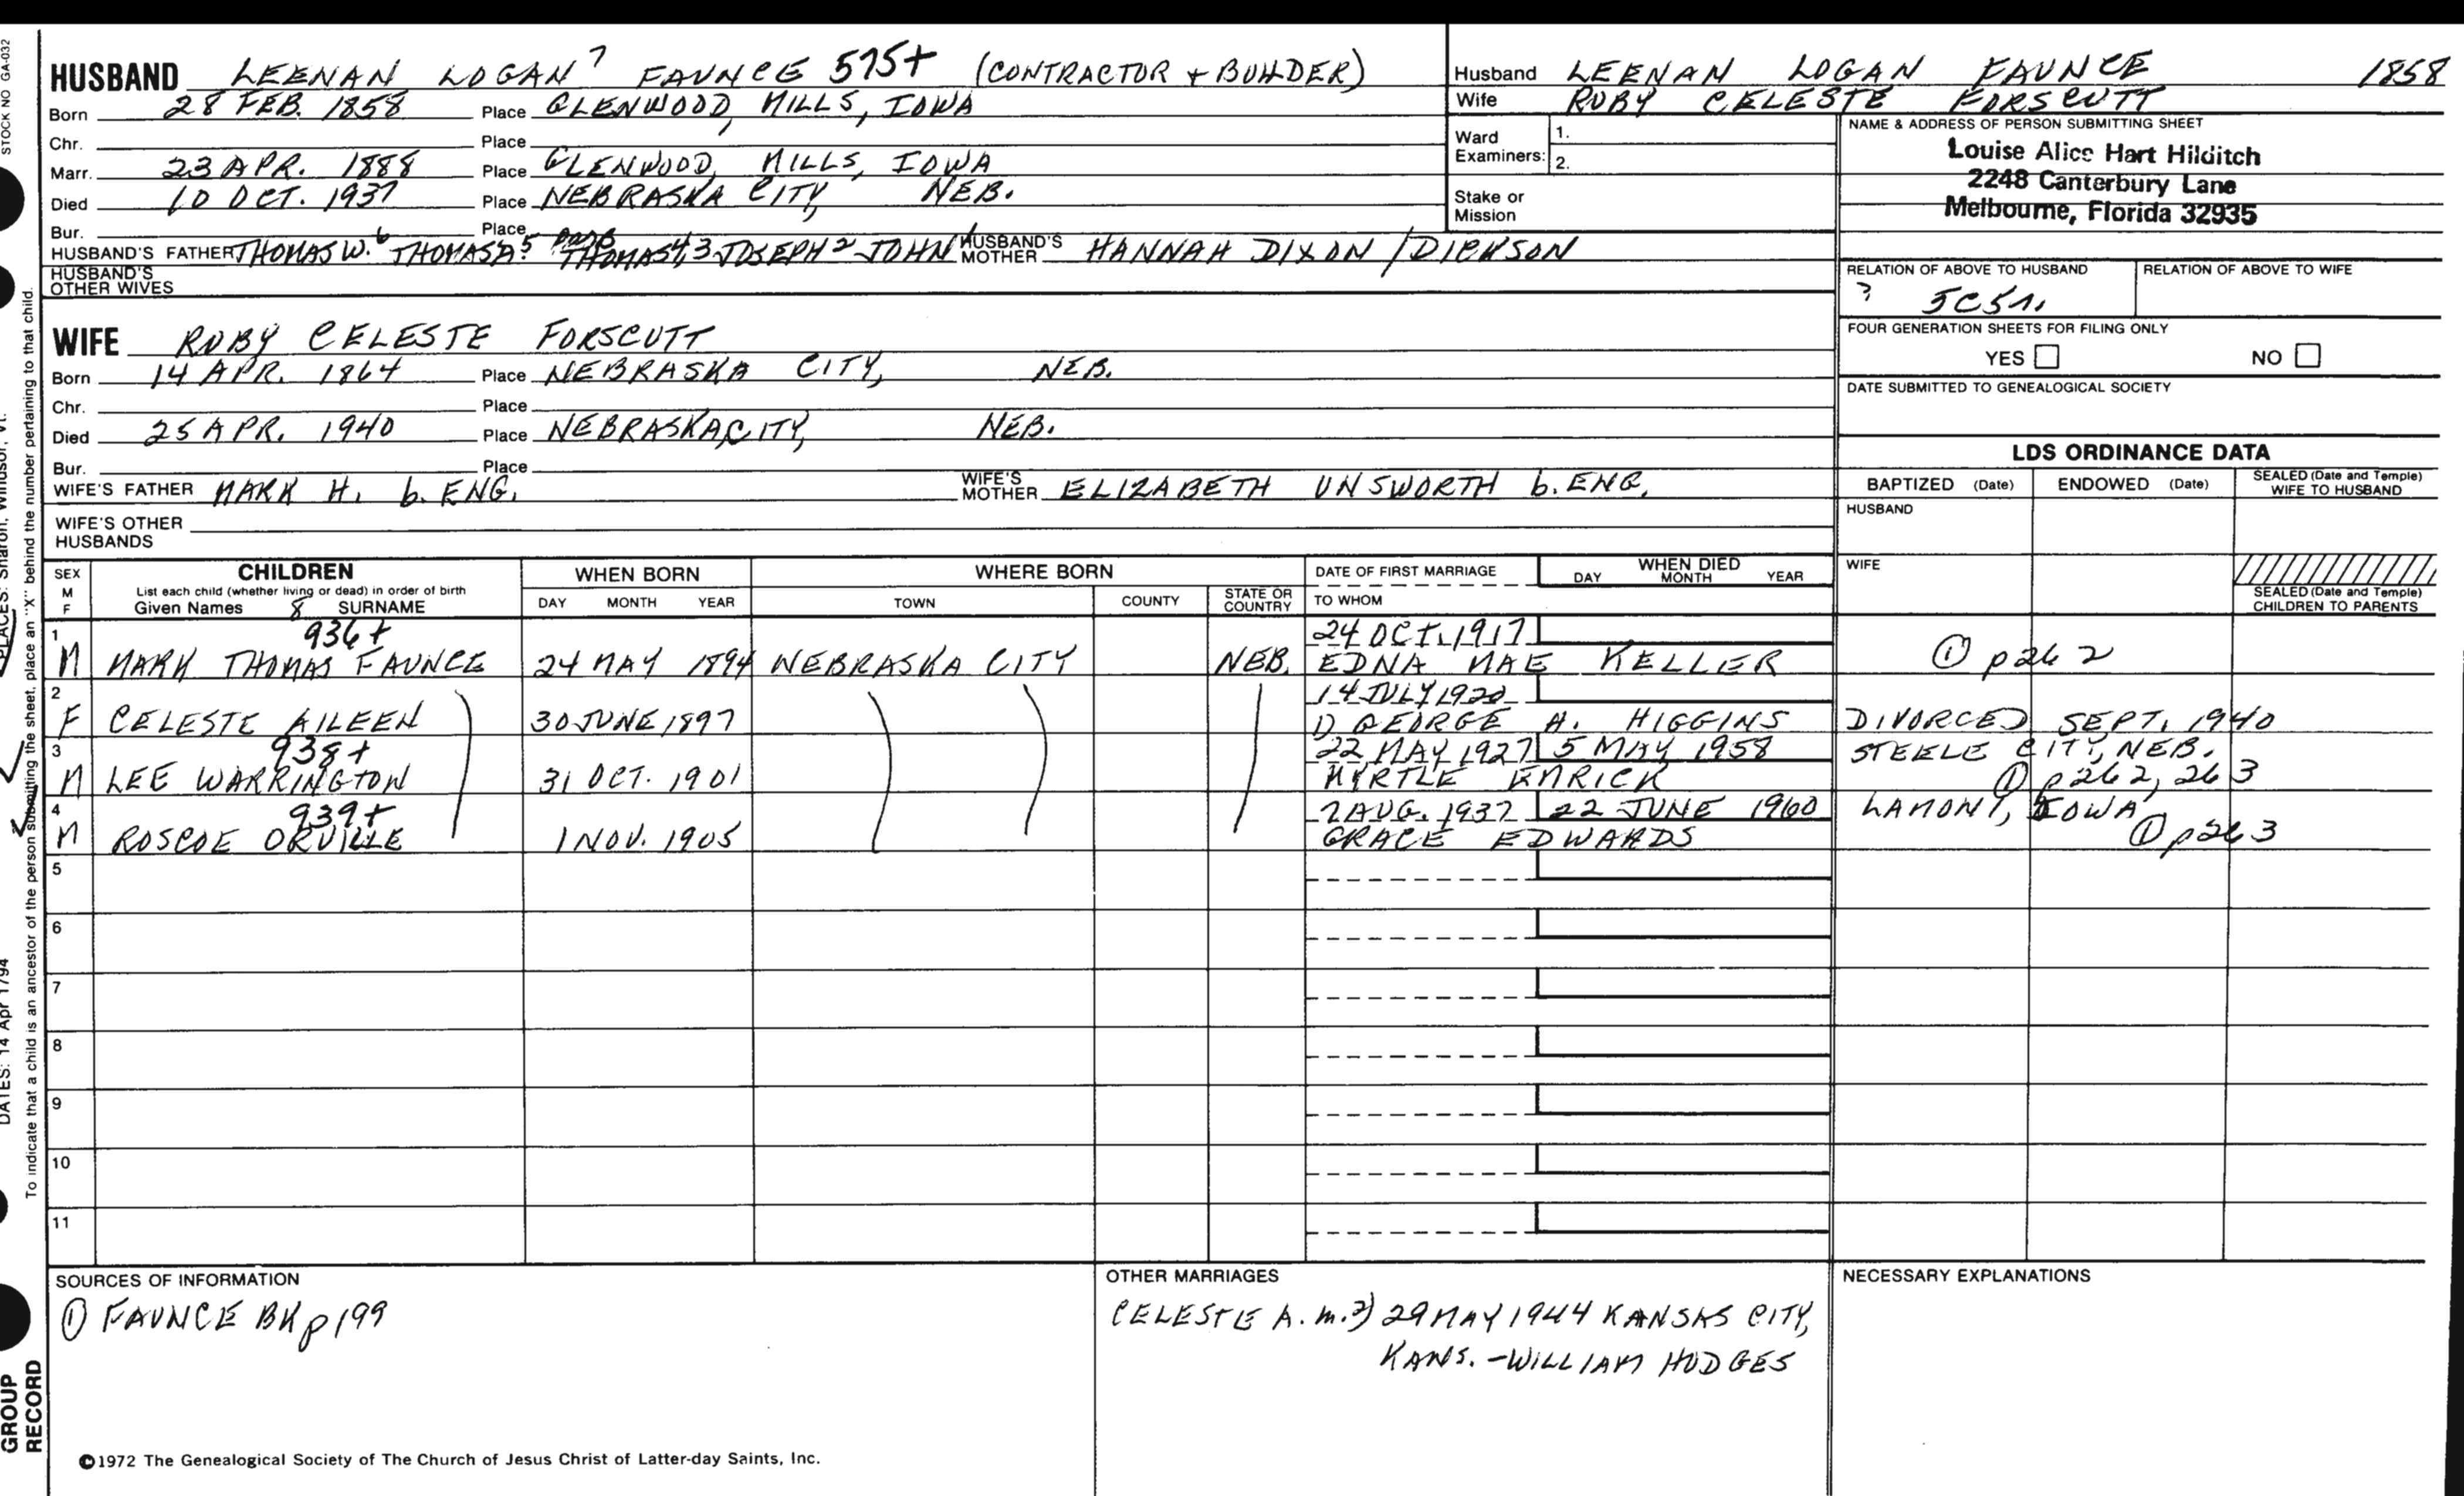 STOCK NO GA-032
HUSBAND LEENAN LOGAN 7 FAUNCE 575+ (CONTRACTOR + BUILDER)
Born 28 FEB. 1858 Place GLENWOOD, MILLS, IOWA
Chr. Place
Marr. 23 APR. 1888 Place GLENWOOD, MILLS, IOWA
Died 10 OCT. 1937 Place NEBRASKA CITY, NEB.
Bur. Place
HUSBAND'S FATHER THOMAS W. 6 THOMAS A. 5 THOMAS 4,3 JOSEPH 2 JOHN 1 HUSBAND'S MOTHER HANNAH DIXON / DICKSON
HUSBAND'S OTHER WIVES
Husband LEENAN LOGAN FAUNCE 1858
Wife RUBY CELESTE FORSCUTT
Ward Examiners: 1.
2.
Stake or Mission
NAME & ADDRESS OF PERSON SUBMITTING SHEET
Louise Alice Hart Hilditch
2248 Canterbury Lane
Melbourne, Florida 32935
RELATION OF ABOVE TO HUSBAND RELATION OF ABOVE TO WIFE
? 5C5
FOUR GENERATION SHEETS FOR FILING ONLY
YES NO
DATE SUBMITTED TO GENEALOGICAL SOCIETY
WIFE RUBY CELESTE FORSCUTT
Born 14 APR. 1864 Place NEBRASKA CITY, NEB.
Chr. Place
Died 25 APR. 1940 Place NEBRASKA CITY, NEB.
Bur. Place
WIFE'S FATHER MARK H. b. ENG. WIFE'S MOTHER ELIZABETH UNSWORTH b. ENG.
WIFE'S OTHER HUSBANDS
LDS ORDINANCE DATA
BAPTIZED (Date) ENDOWED (Date) SEALED (Date and Temple) WIFE TO HUSBAND
HUSBAND
WIFE
SEALED (Date and Temple) CHILDREN TO PARENTS
SEX M F CHILDREN WHEN BORN WHERE BORN DATE OF FIRST MARRIAGE WHEN DIED
List each child (whether living or dead) in order of birth
Given Names 8 SURNAME DAY MONTH YEAR TOWN COUNTY STATE OR COUNTRY TO WHOM DAY MONTH YEAR
1 936+ 24 OCT. 1917
M MARK THOMAS FAUNCE 24 MAY 1894 NEBRASKA CITY NEB. EDNA MAE KELLER ① p262
2 14 JULY 1920
F CELESTE AILEEN 30 JUNE 1897 1) GEORGE A. HIGGINS DIVORCED SEPT. 1940
3 938+ 22 MAY 1927 5 MAY 1958 STEELE CITY, NEB.
M LEE WARRINGTON 31 OCT. 1901 MYRTLE EMRICK ① p262, 263
4 939+ 7 AUG. 1937 22 JUNE 1960 LAMONT, IOWA
M ROSCOE ORVILLE 1 NOV. 1905 GRACE EDWARDS ① p263
5
6
7
8
9
10
11
SOURCES OF INFORMATION
① FAUNCE BK p199
OTHER MARRIAGES
CELESTE A. m. 2) 29 MAY 1944 KANSAS CITY,
KANS. - WILLIAM HODGES
NECESSARY EXPLANATIONS
©1972 The Genealogical Society of The Church of Jesus Christ of Latter-day Saints, Inc.
To indicate that a child is an ancestor of the person submitting the sheet, place an "X" behind the number pertaining to that child.
PLACES: Sharon, Windsor, Vt.
DATES: 14 Apr 1794
GROUP
RECORD